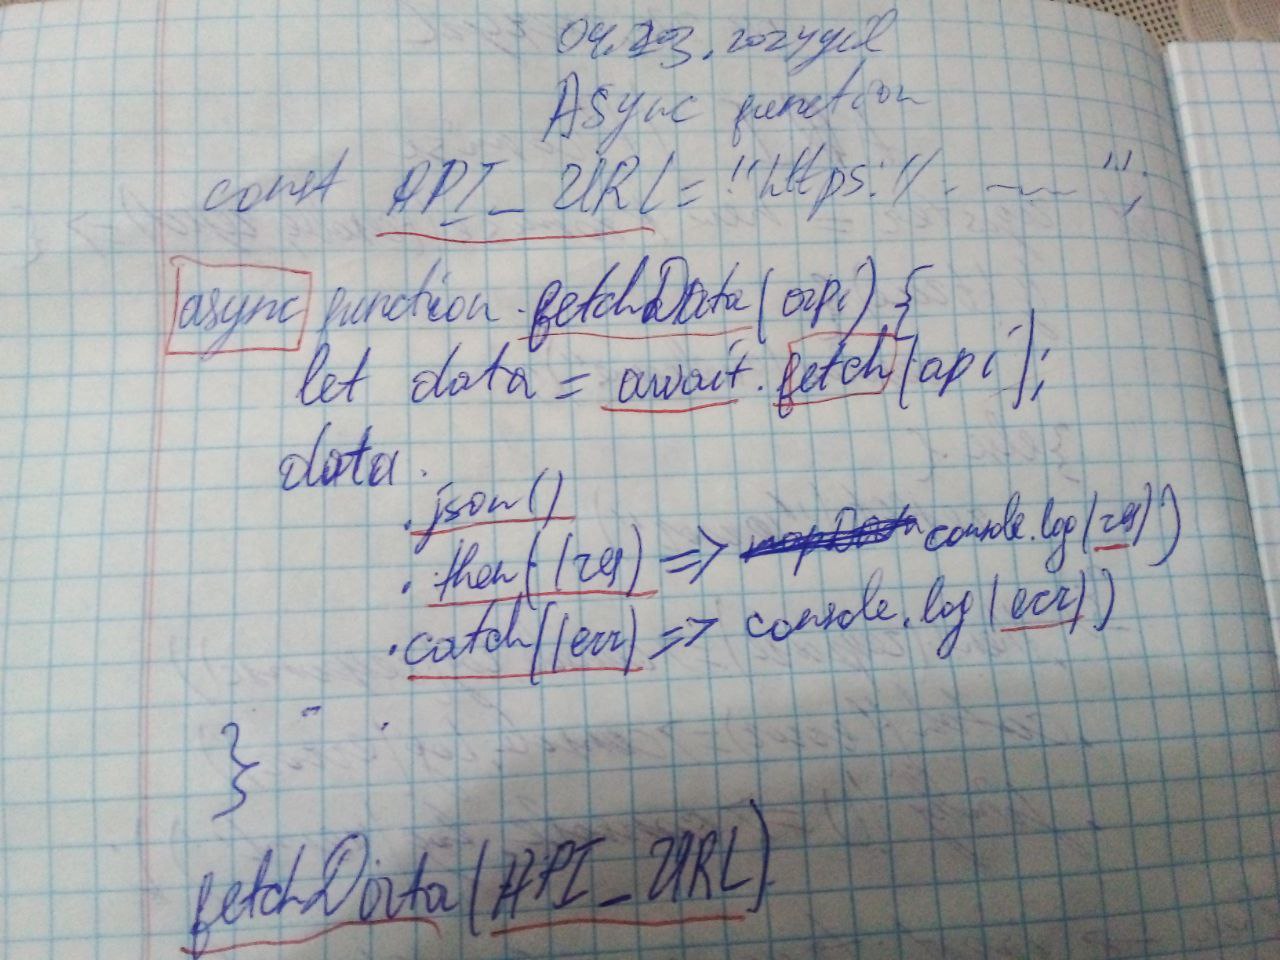 Async function
const API_URL = "https://. ----";
async function fetchData(api) {
let data = await fetch(api);
data.
.json()
.then((res) => console.log(res))
.catch((err) => console.log(err))
}
fetchData(API_URL)